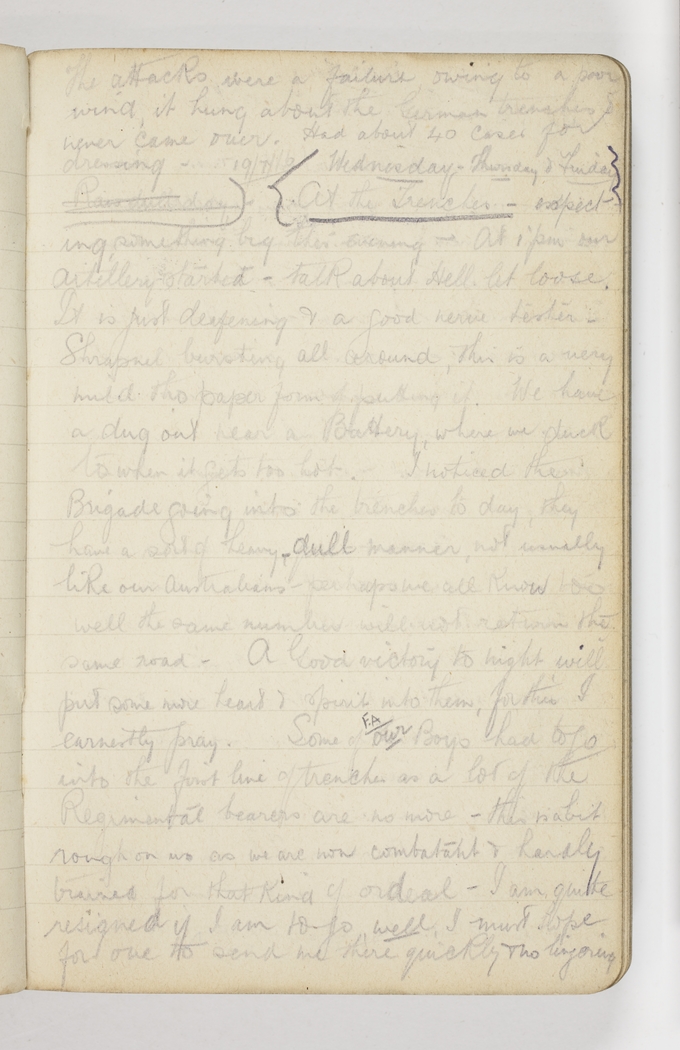 The attacks were a failure owing to a poor
wind, it hung about the German trenches &
never came over. Had about 40 cases for
dressing - 19/7/16 Wednesday - Thursday & Friday
Rain dull day { At the Trenches - expect-
ing something big this evening - At 1 pm our
artillery started - talk about Hell let loose.
It is just deafening & a good nerve tester -
Shrapnel bursting all around, this is a very
mild tho paper form of putting it. We have
a dug out near a Battery, where we duck
to when it gets too hot. - I noticed the
Brigade going into the trenches to day, they
have a sort of heavy, dull manner, not usually
like our Australians - perhaps we all know too
well the same number will not return the
same road - A Good victory to night will
put some more heart & spirit into them, for this I
earnestly pray. Some of our F.A Boys had to go
into the first line of trenches as a lot of the
Regimental bearers are no more - this is a bit
rough on us as we are non combatant & hardly
trained for that kind of ordeal - I am quite
resigned if I am to go, well, I must hope
for one to send me there quickly & no lingering